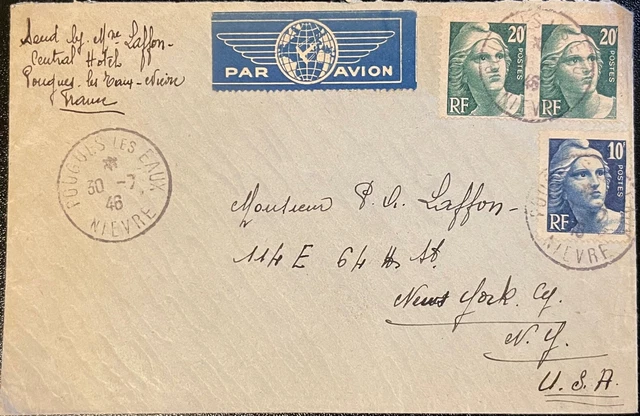 Send by Mme Laffon-
Central Hotel
Pougues-les Eaux-Nièvre
France
PAR AVION
20F
POSTES
RF
20F
POSTES
46
NIEVRE
10F
POSTES
RF
NIEVRE
POUGUES LES EAUX
30 -7
46
NIEVRE
Monsieur P. A. Laffon-
114 E 64th St.
New York. Cy.
N. Y.
U. S. A.